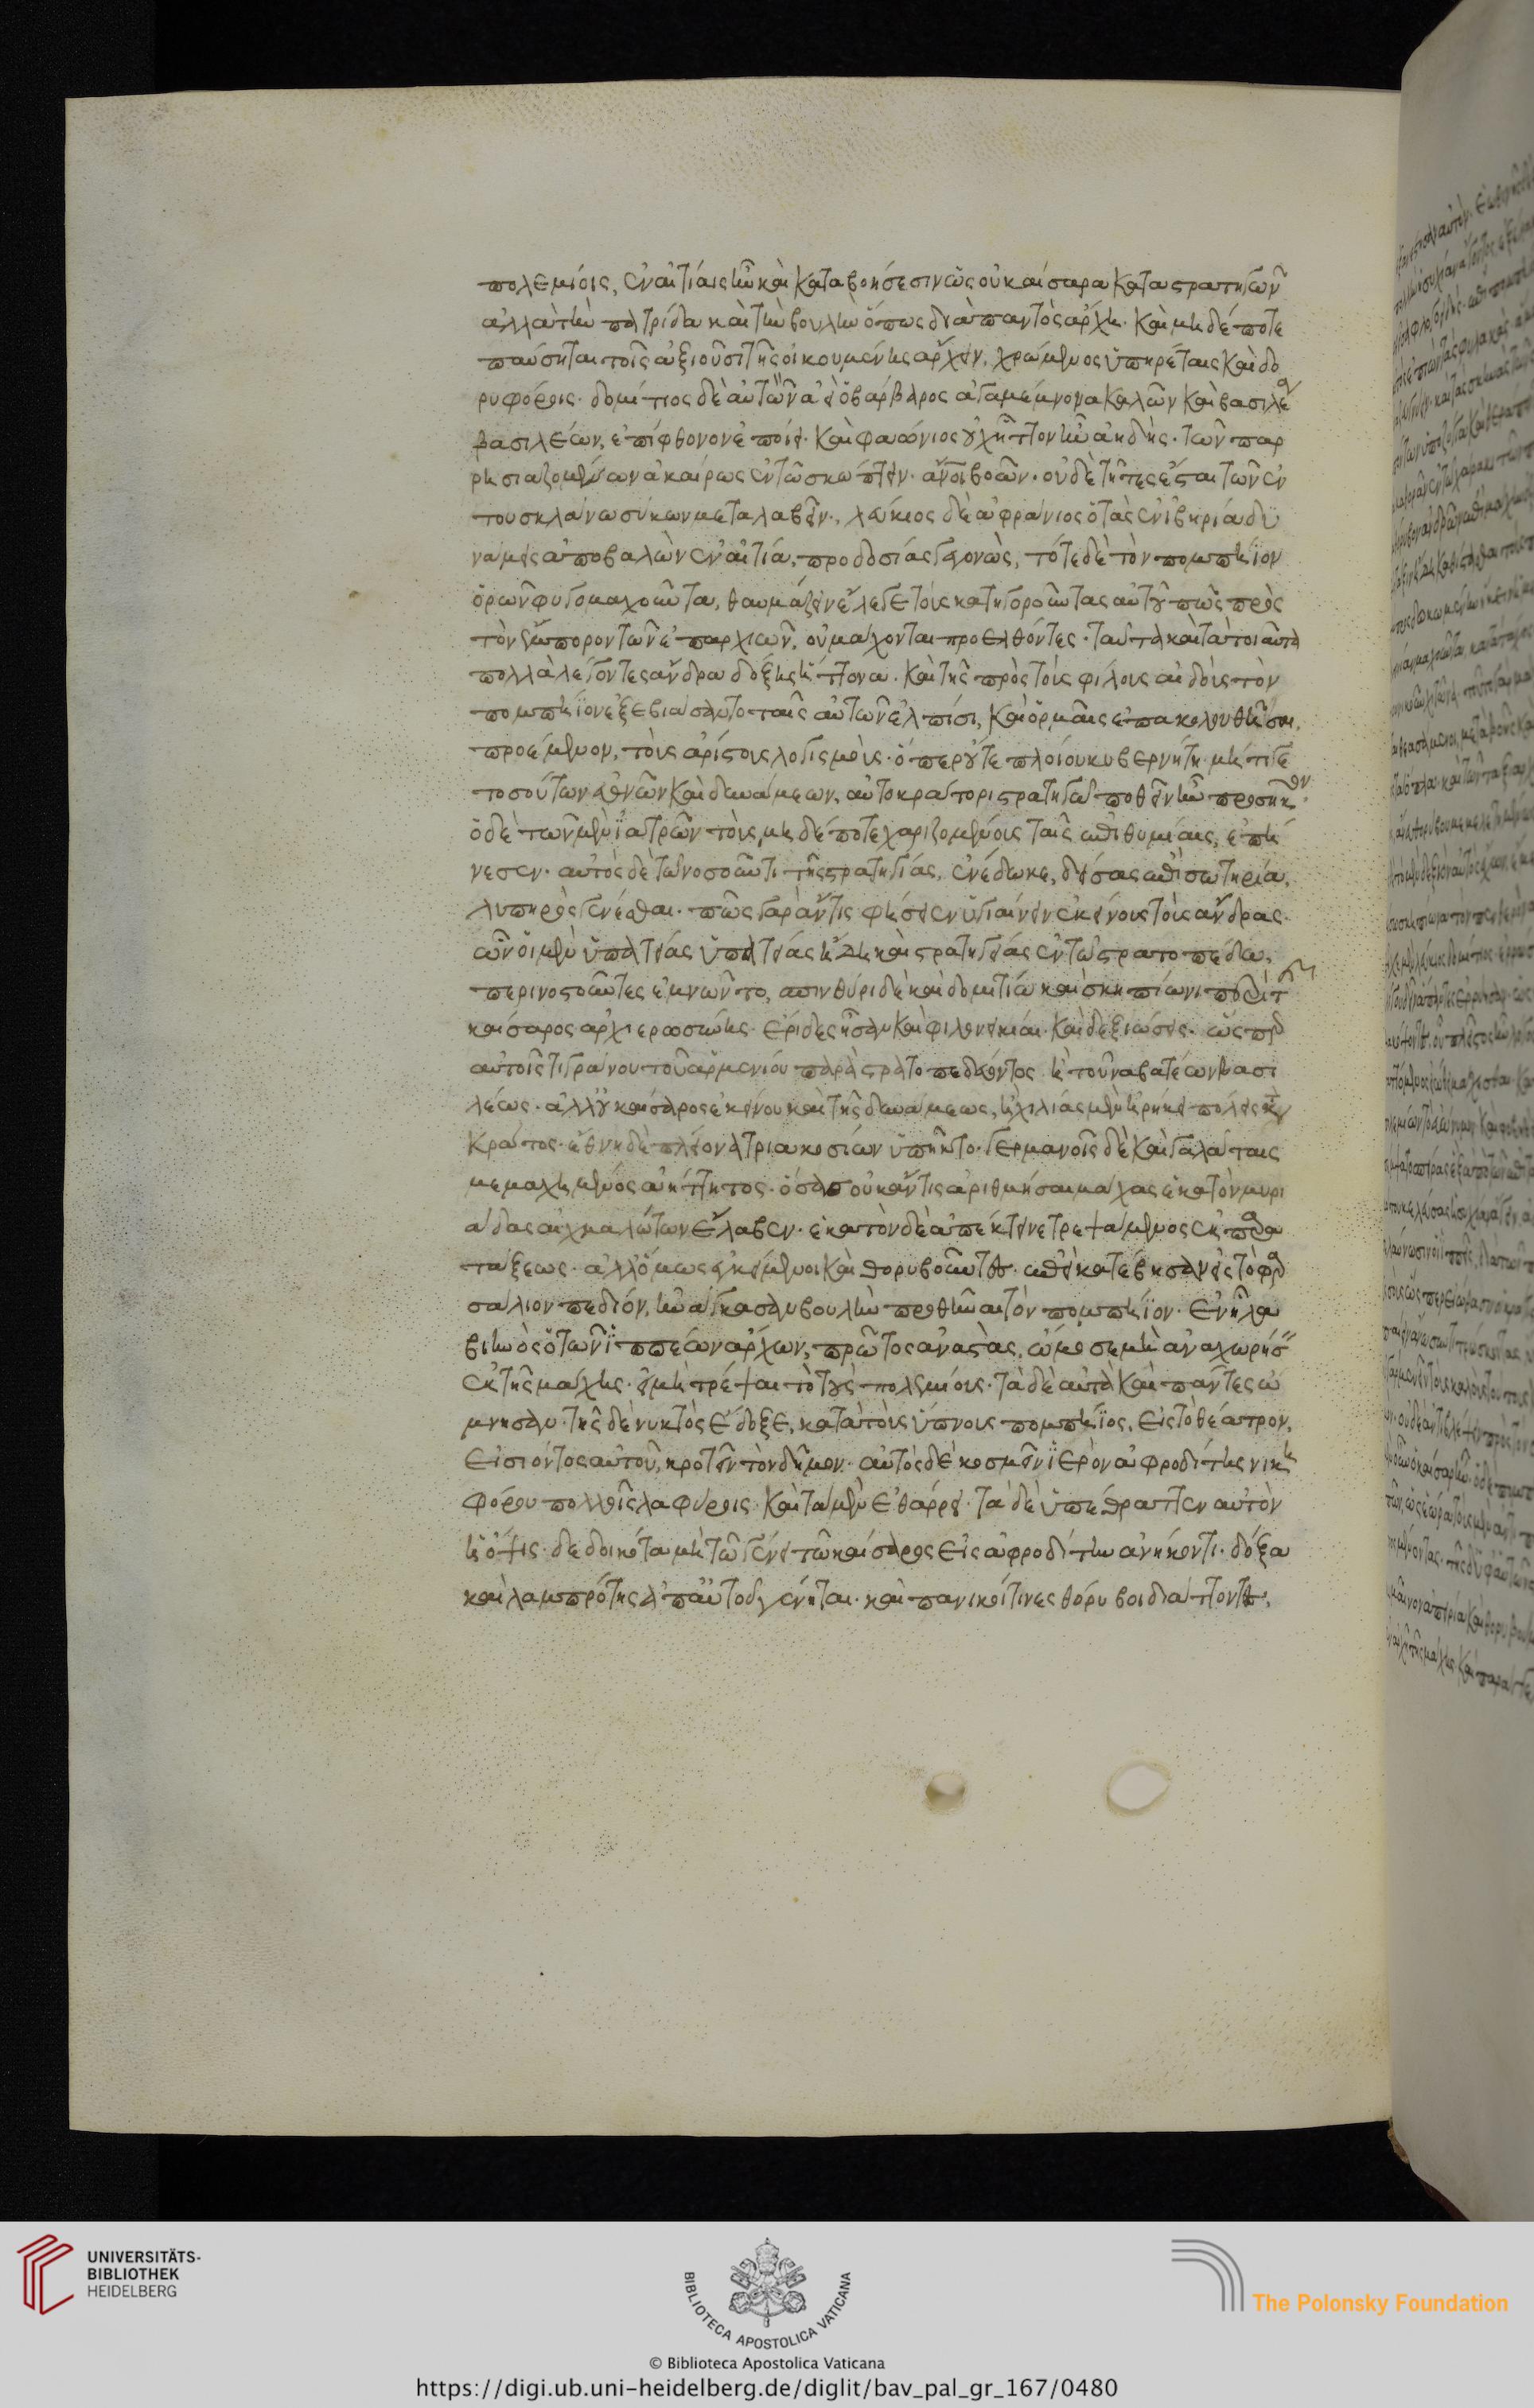 πολεμίοις, ἐν αἰτίαις ἦν καὶ καταβοήσεσιν ὡς οὐ καίσαρα καταστρατηγῶν
ἀλλὰ τὴν πατρίδα καὶ τὴν βουλὴν ὅπως διὰ παντὸς ἄρχη. καὶ μηδέποτε
παύσηται τοῖς ἀξιοῦσι τῆς οἰκουμένης ἄρχειν, χρώμενος ὑπηρέταις καὶ δο
ρυφόροις. δομίτιος δὲ αὐτὸν ἀεὶ ὁ βάρβαρος ἀγαμέμνονα καλῶν καὶ βασιλέα
βασιλέων, ἐπίφθονον ἐποίει. καὶ φαώνιος οὐχ ἧττον ἦν ἀηδὴς. τῶν παρ
ρησιαζομένων ἀκαίρως ἐν τῶ σκώπτειν. ἄνοι βοῶν. οὐδὲ τῆτες ἔσται τῶν ἐν
τουσκλάνω σύκων μεταλαβεῖν. λεύκιος δὲ ἀφράνιος ὁ τὰς ἐν ἰβηρία δυ
νάμεις ἀποβαλὼν ἐν αἰτία, προδοσίας γεγονὼς, τότε δὲ τὸν πομπήϊον
ὁρῶν φυγομαχοῦντα, θαυμάζειν ἔλεγε τοὺς κατηγοροῦντας αὐτοῦ πῶς πρὸς
τὸν ἔμπορον τῶν ἐπαρχιῶν, οὐ μάχονται προελθόντες. ταῦτα καὶ τὰ τοιαῦτα
πολλὰ λέγοντες ἄνδρα δόξης ἥττονα. καὶ τῆς πρὸς τοὺς φίλους αἰδοῦς τὸν
πομπήϊον ἐξεβιάσαντο ταῖς αὐτῶν ἐλπίσι, καὶ ὁρμαῖς ἐπακολουθῆσαι,
προέμενον, τοὺς ἀρίστους λογισμοὺς. ὅπερ οὔτε πλοίου κυβερνήτη. μήτι γε
τοσούτων ἐθνῶν καὶ δυνάμεων, αὐτοκράτορι στρατηγῶ παθεῖν ἦν προσῆκον.
ὁ δὲ τῶν μὲν ἰατρῶν τοὺς μηδέποτε χαριζομένους ταῖς ἐπιθυμίαις, ἐπή
νεσεν. αὐτὸς δὲ τῶ νοσοῦντι τῆς στρατηγίας, ἐνέδωκε, δείσας ἐπὶ σωτηρία,
λυπηρὸς γενέσθαι. πῶς γὰρ ἄν τις φήσειεν ὑγιαίνειν ἐκείνους τοὺς ἄνδρας.
ὧν οἱ μὲν ὑπατείας ὑπατείας ἤδη καὶ στρατηγίας ἐν τῶ στρατοπέδω,
περινοστοῦντες ἐμνῶντο, σπινθῆρι δὲ καὶ δομιτίω καὶ σκηπίωνι περὶ τῆς
καίσαρος ἀρχιερωσύνης. ἔριδες ἦσαν καὶ φιλονεικίαι. καὶ δεξιώσεις. ὥσπερ
αὐτοῖς τιγράνου τοῦ ἀρμενίου παραστρατοπεδεύοντος ἢ τοῦ ναβατέων βασι
λέως. ἀλλ' οὐ καίσαρος ἐκείνου καὶ τῆς δυνάμεως, ἧ χιλίας μὲν ἡρήκει πόλεις κατὰ
κράτος. ἔθνη δὲ πλείονα τριακοσίων ὑπῆκτο. γερμανοῖς δὲ καὶ γαλάταις
μεμαχημένος ἀήττητος. ὅσας οὐκ ἄν τις ἀριθμήσαι μάχας ἑκατὸν μυρι
άδας αἰχμαλώτων ἔλαβεν. ἑκατὸν δὲ ἀπέκτεινε τρεψάμενος ἐκ παρα
τάξεως. ἀλλ' ὅμως ἐγκείμενοι καὶ θορυβοῦντες. ἐπεὶ κατέβησαν εἰς τὸ φαρ
σάλιον πεδίον, ἠνάγκασαν βουλὴν προθεῖναι τὸν πομπήϊον. ἐν ἧ λα
βιηνὸς ὁ τῶν ἱππέων ἄρχων, πρῶτος ἀναστὰς, ὤμοσε μὴ ἀναχωρήσειν
ἐκ τῆς μάχης. εἰ μὴ τρέψαιτο τοὺς πολεμίους. τὰ δὲ αὐτὰ καὶ πάντες ὤ
μνησαν. τῆς δὲ νυκτὸς ἔδοξε, κατὰ τοὺς ὕπνους πομπήϊος, εἰς τὸ θέατρον,
εἰσιόντος αὐτοῦ, κροτεῖν τὸν δῆμον. αὐτὸς δὲ κοσμεῖν ἱερὸν ἀφροδίτης νικη
φόρου πολλοῖς λαφύροις. καὶ τὰ μὲν ἐθάρρει. τὰ δὲ ὑπέθραττεν αὐτὸν
ἡ ὄψις. δεδοικότα μὴ τῶ γένει τῶ καίσαρος εἰς ἀφροδίτην ἀνήκοντι. δόξα
καὶ λαμπρότης ἀπ' αὐτοῦ γένηται. καὶ πανικοί τινες θόρυβοι διάττοντες,
UNIVERSITÄTS-
BIBLIOTHEK
HEIDELBERG
BIBLIOTECA APOSTOLICA VATICANA
The Polonsky Foundation
© Biblioteca Apostolica Vaticana
https://digi.ub.uni-heidelberg.de/diglit/bav_pal_gr_167/0480